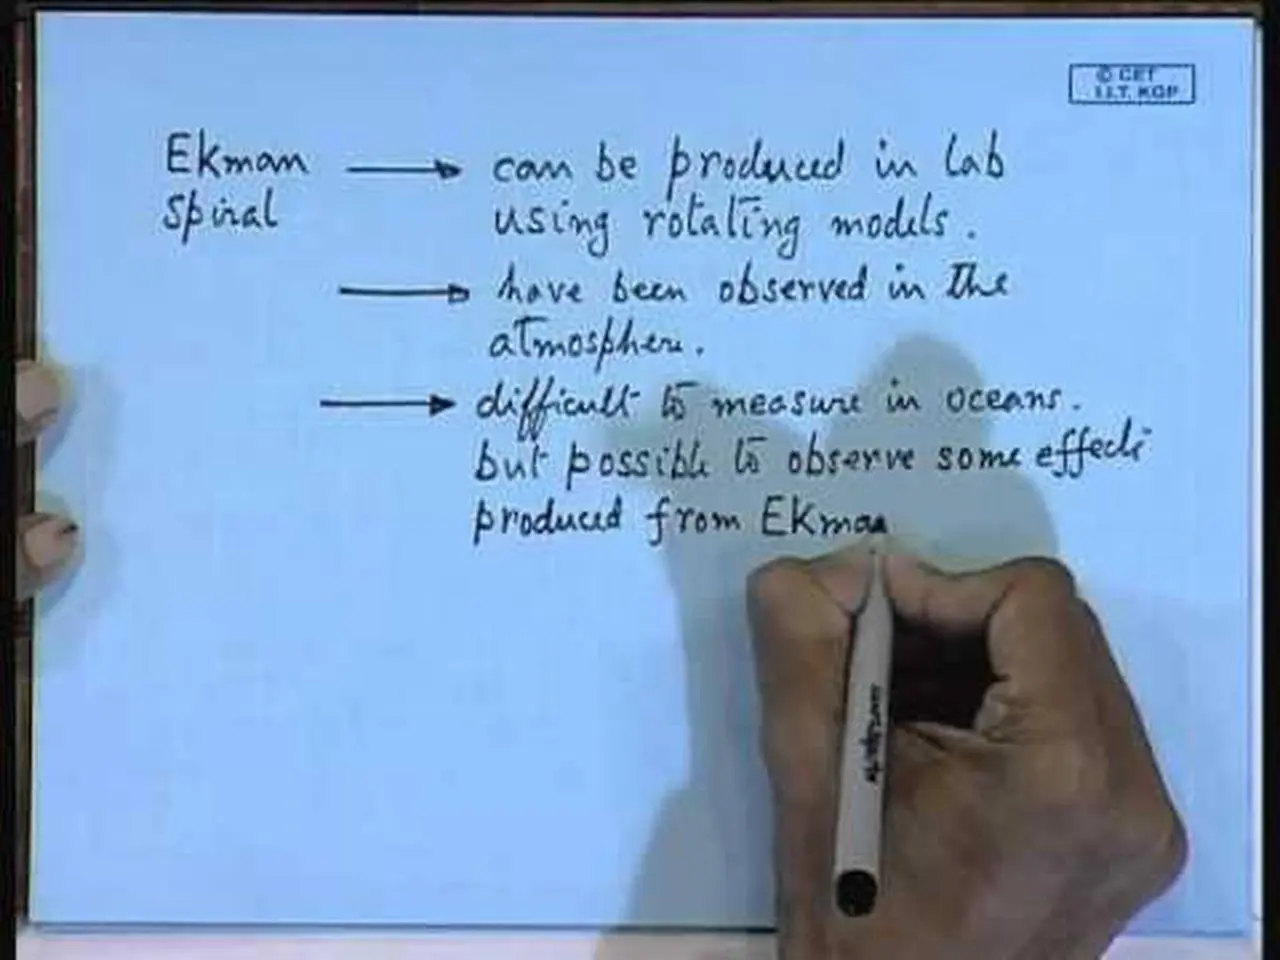 © CET
I.I.T. KGP
Ekman → can be produced in lab
Spiral using rotating models.
→ have been observed in the
atmosphere.
→ difficult to measure in oceans.
but possible to observe some effects
produced from Ekman